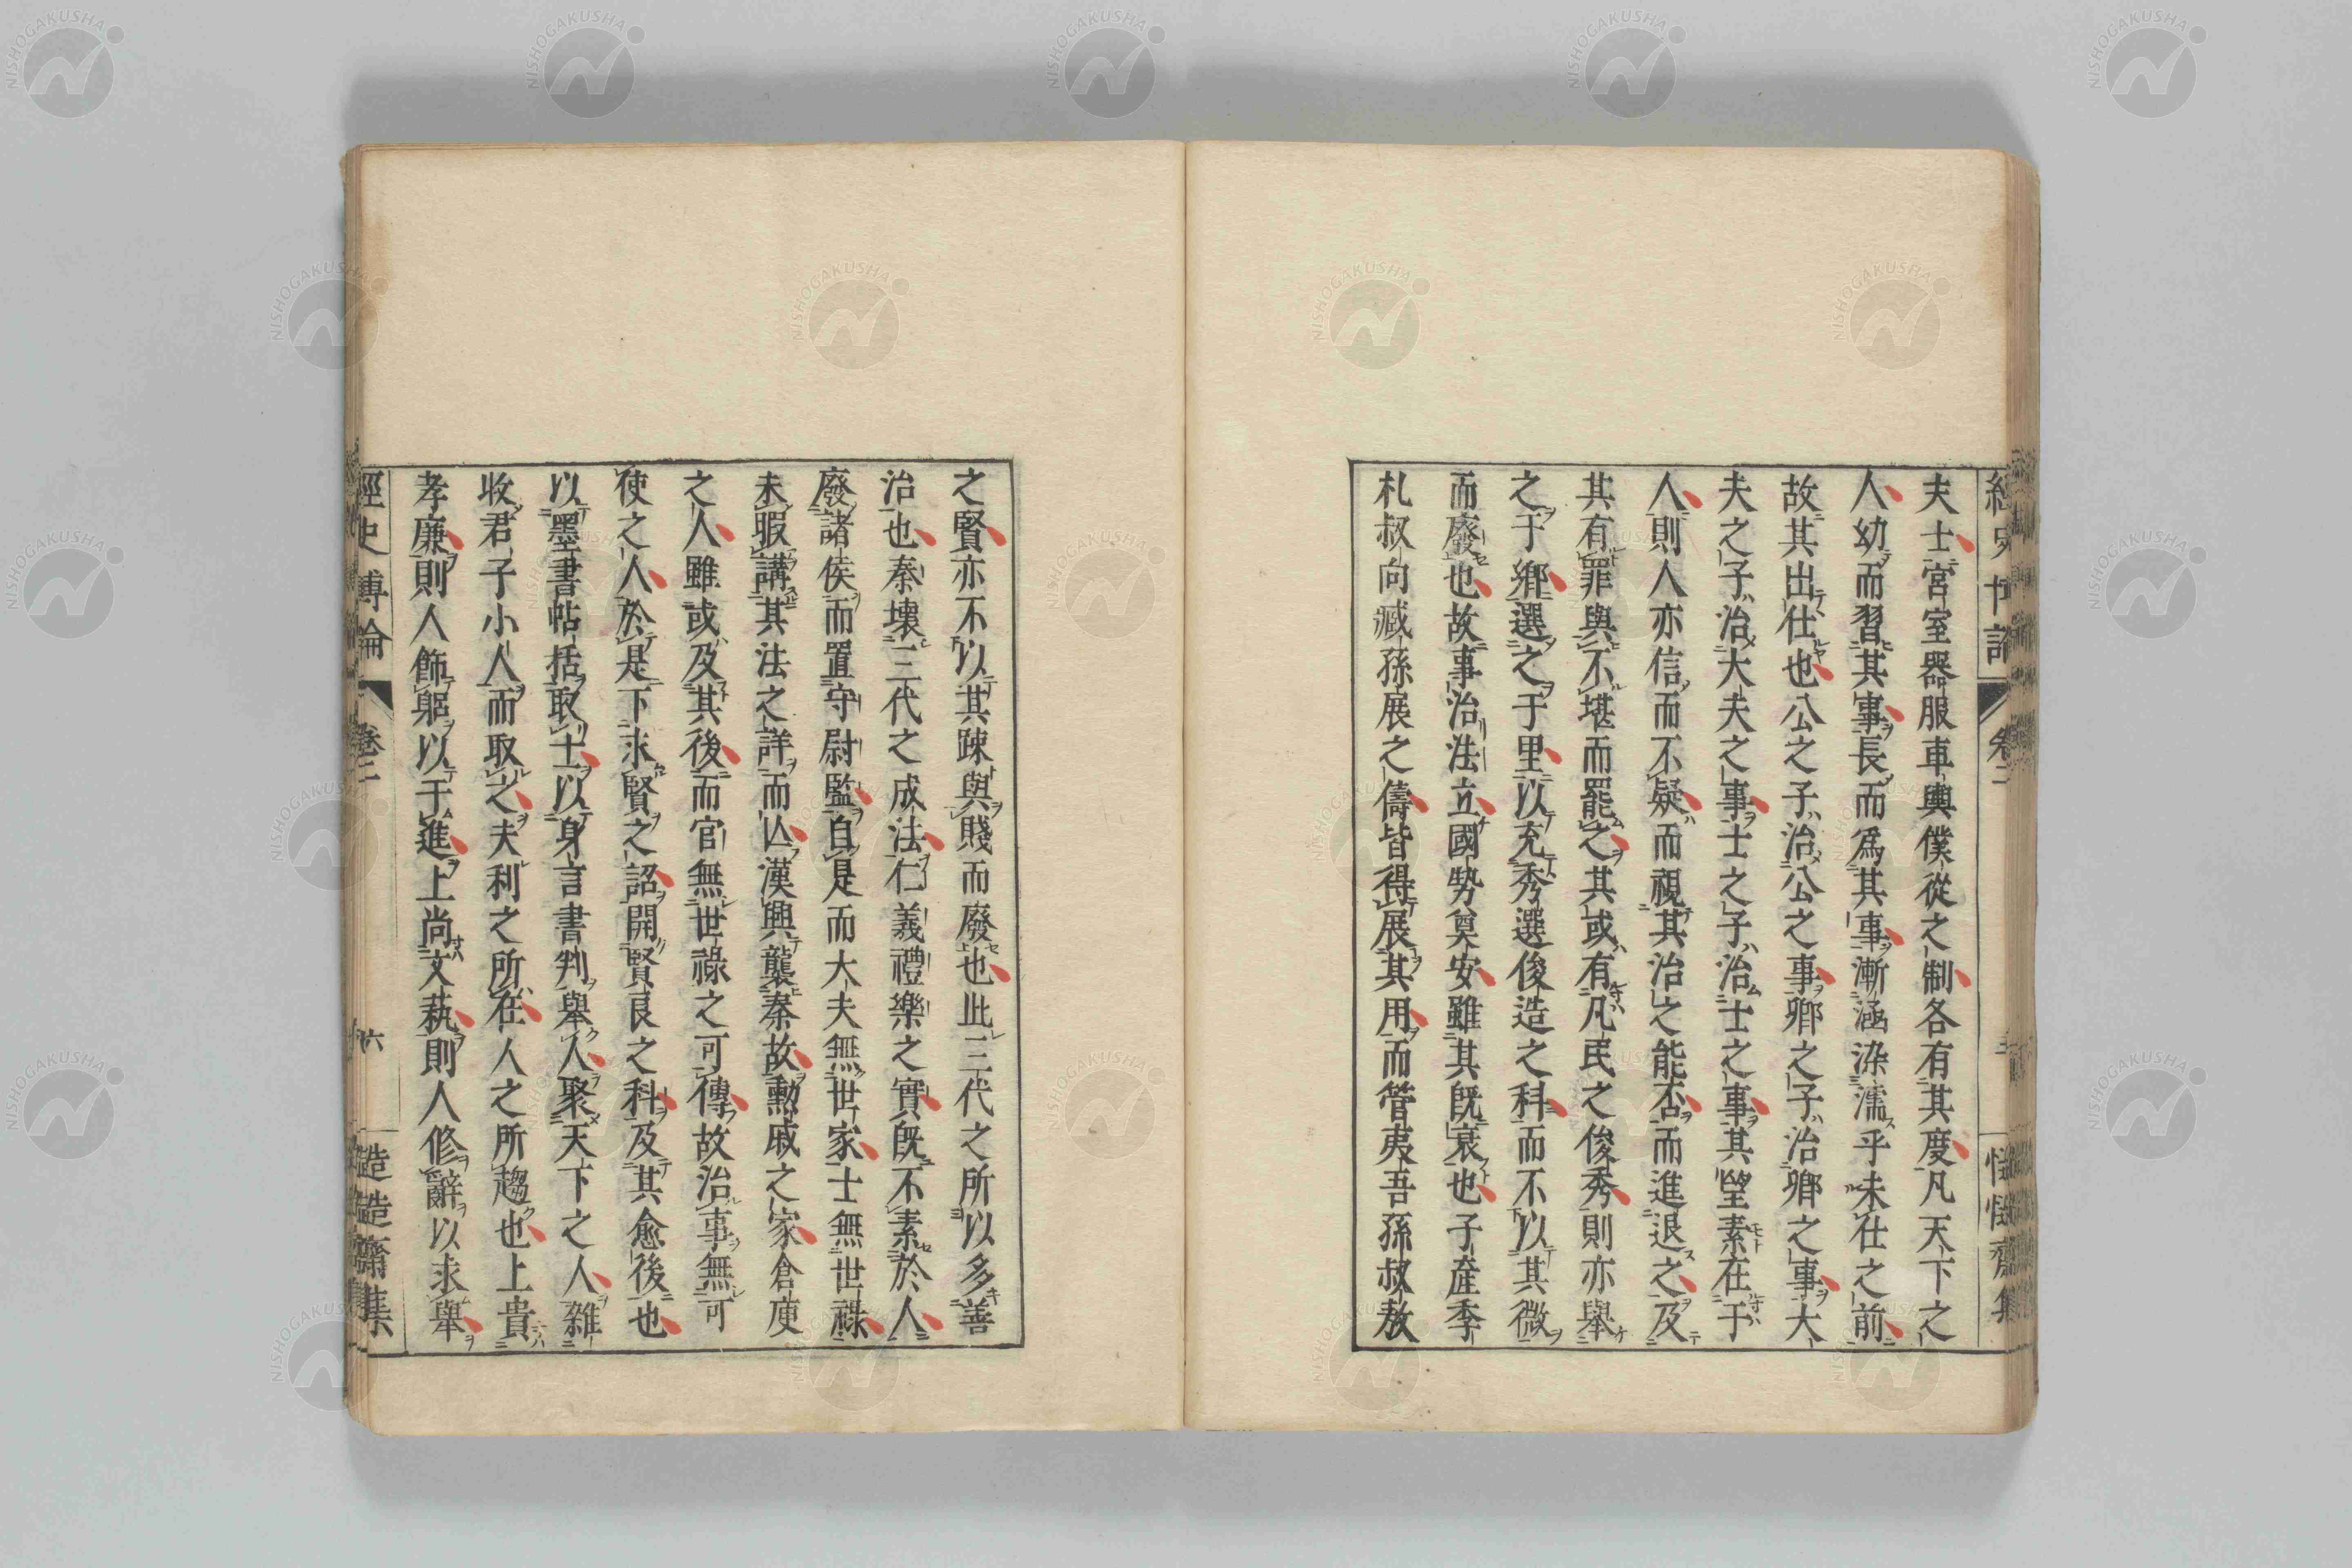 夫士宮室器服車輿僕從之制各有其度凡天下之
人幼而習其事長而爲其事漸涵染濡乎未仕之前
故其出仕也公之子治公之事卿之子治卿之事大
夫之子治大夫之事士之子治士之事其望素在于
人則人亦信而不疑而視其治之能否而進退之及
其有罪與不堪而罷之其或有凡民之俊秀則亦舉
之于鄉選之于里以充秀選俊造之科而不以其微
而廢也故事治法立國勢奠安雖其既衰也子產季
札叔向臧孫展之儔皆得展其用而管夷吾孫叔敖
之賢亦不以其踈與賤而廢也此三代之所以多善
治也秦壞三代之成法仁義禮樂之實既不素於人
廢諸侯而置守尉監自是而大夫無世家士無世祿
未暇講其法之詳而亾漢興襲秦故勳戚之家倉庾
之人雖或及其後而官無世祿之可傳故治事無可
使之人於是下求賢之詔開賢良之科及其愈後也
以墨書帖括取士以身言書判舉人聚天下之人雜
收君子小人而取之夫利之所在人之所趨也上貴
孝廉則人飾躬以于進上尚文藝則人修辭以求舉
經史博論
卷二
六
NISHOGAKUSHA